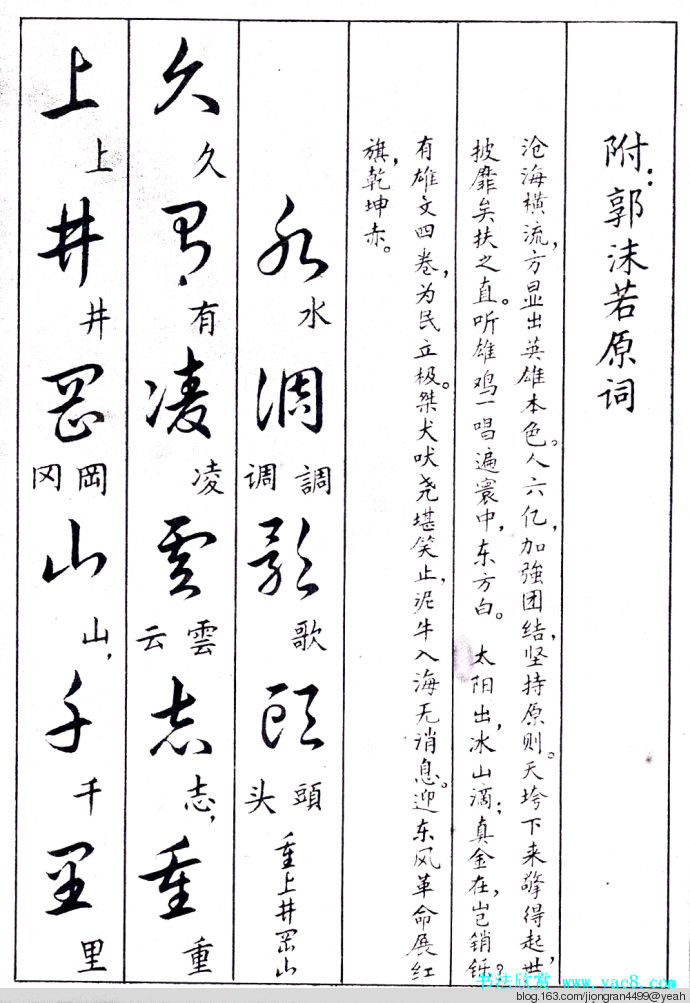 附：郭沫若原词
沧海横流，方显出英雄本色。人六亿，加強团结，坚持原则。天垮下来擎得起，世
披靡矣扶之直。听雄鸡一唱遍寰中，东方白。 太阳出，冰山滴；真金在，岂销铄？
有雄文四卷，为民立极。桀犬吠尧堪笑止，泥牛入海无消息。迎东风革命展红
旗，乾坤赤。
水 水 调 调 調 歌 歌 頭 头 頭 重上井岡山
久 久 有 有 凌 凌 雲 云 雲 志 志， 重 重
上 上 井 井 岡 冈 岡 山 山， 千 千 里 里
书法欣赏 www.yac8.com
blog.163.com/jiongran4499@yeah